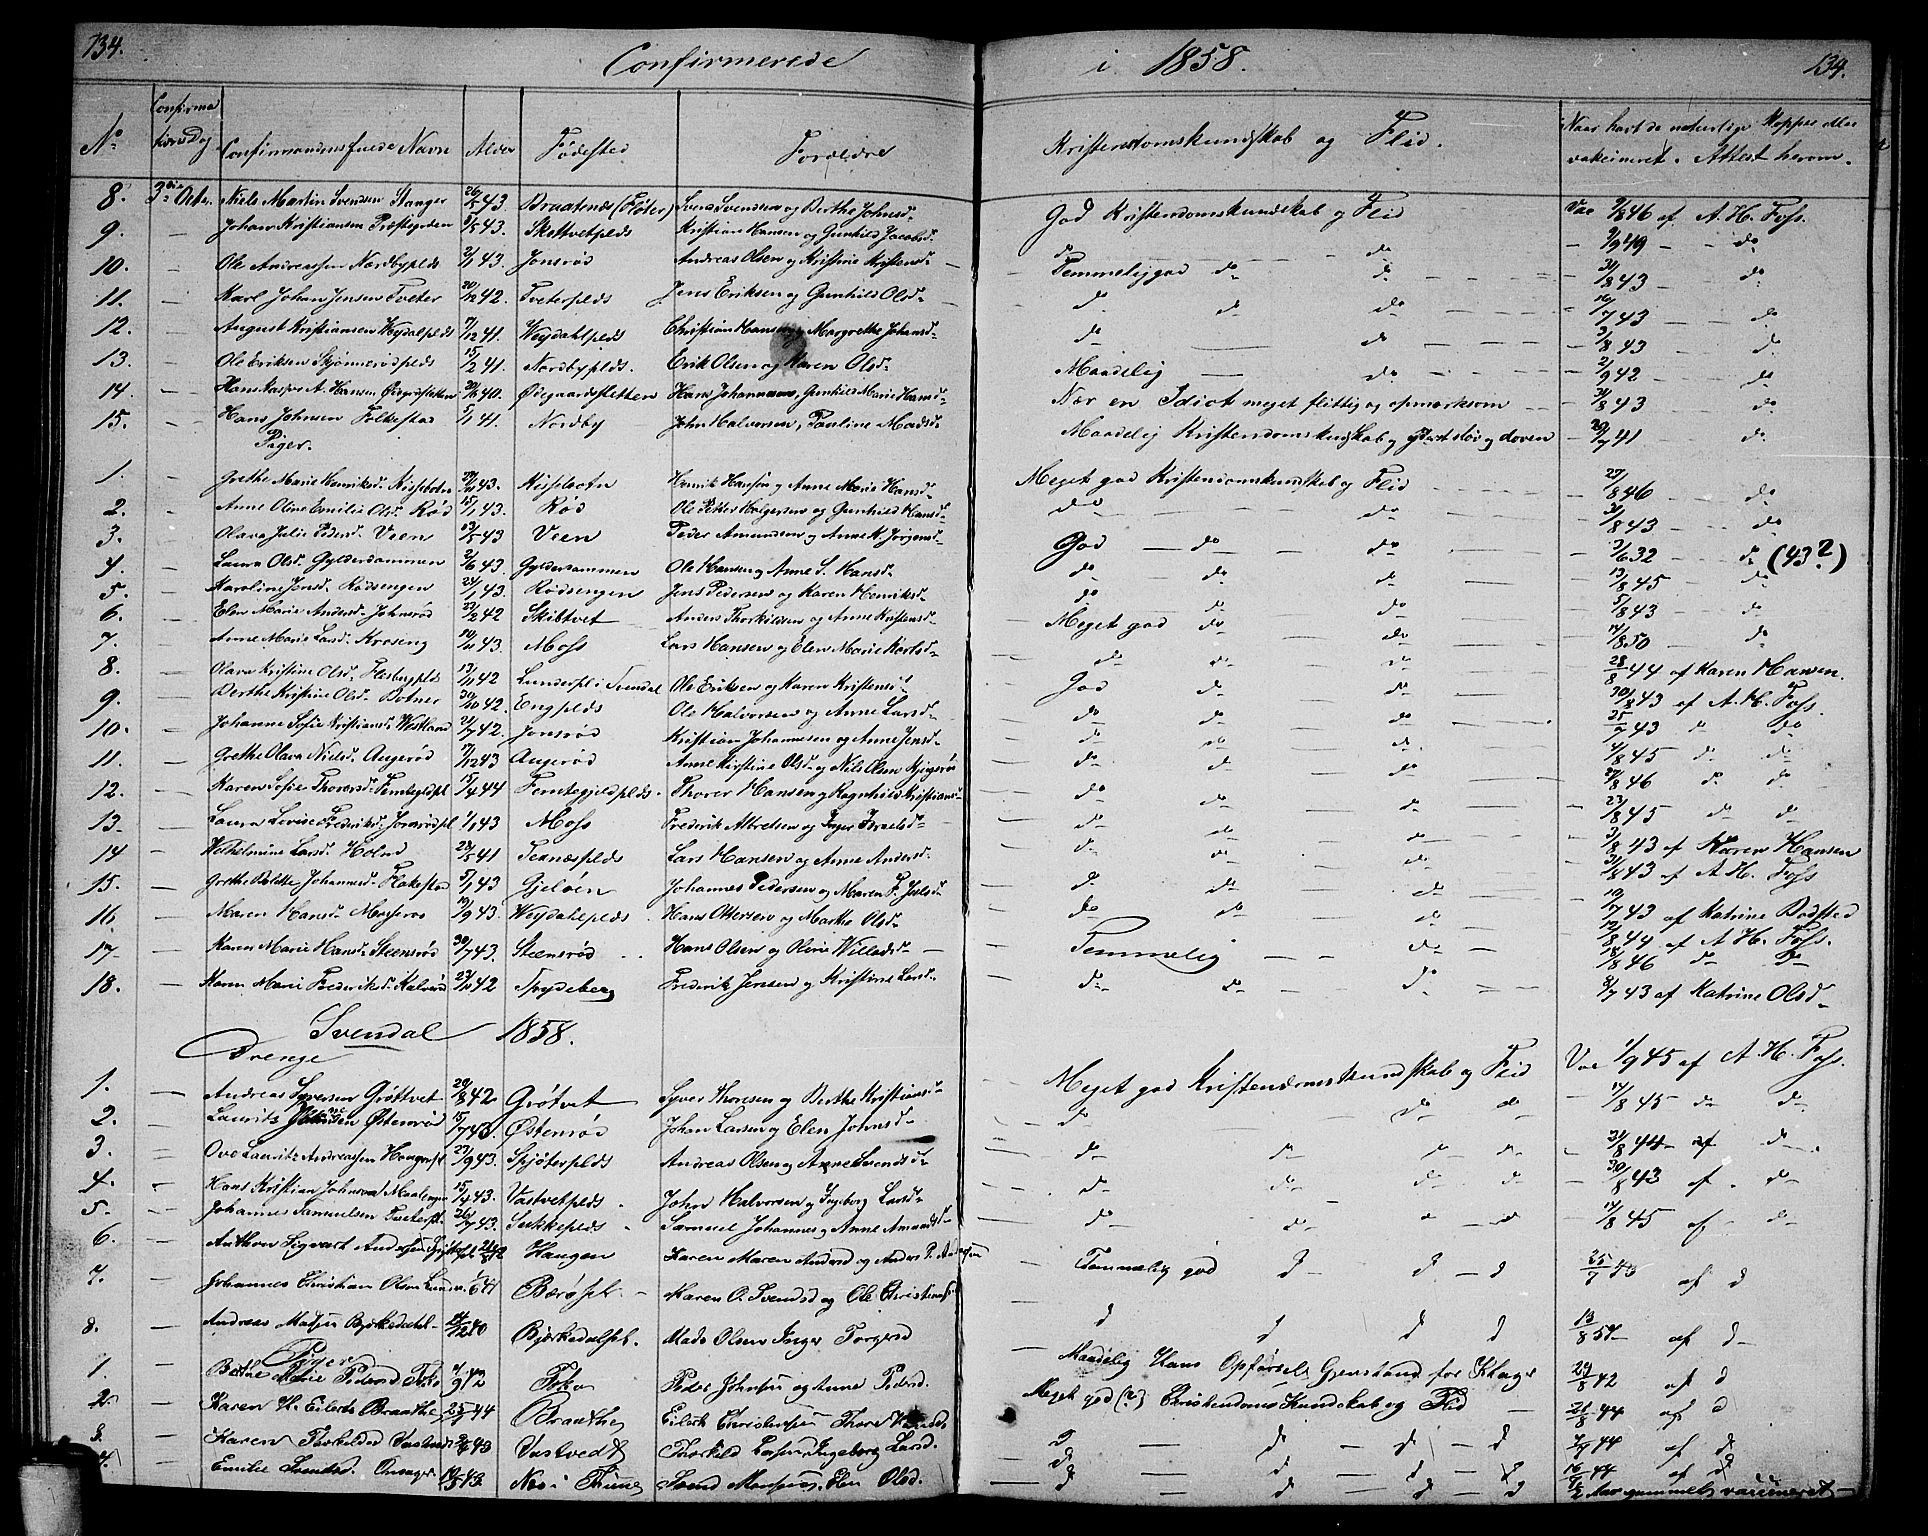 134. Confirmerede i 1858. 134.
No Confirmations Dag Confirmandens fulde Navn Alder Fødested Forældre Kristendomskundskab og Flid. Naar havt de naturlige Kopper eller vakcineret. Attest herom.
8. 3die Octbr. Niels Martin Svendsen Stanger 26/5 43. Braatende (Fløter) Svend Svendsen og Berthe Johnsd. God Kristendomskundskab og Flid Vac 9/8 46 af A. H. Foss.
9. — Johan Kristiansen Præstegrden 5/5 43. Skettvetplds Kristian Hansen og Gunhild Jacobsd. do do — 2/9 49 — do
10. — Ole Andreassen Nordbyplds 2/1 43. Jonsrød Andreas Olsen og Kristine Kristensd. — Temmelig god do do — 31/8 43 — do
11. — Karl Johan Jensen Tveter 20/12 42. Tveterplds Jens Eriksen og Gunhild Olsd. — do do do — 16/7 43 — do
12. — August Kristiansen Weydalplds 7/12 41. Weydahlplds Christian Hansen og Margrethe Johansd. — do do — 31/8 43 — do
13. — Ole Eriksen Skjønnerødplds 15/2 41. Nordbyplds. Erik Olsen og Maren Olsd. Maadelig — do — 2/9 42 — do
14. — Hans Kasper A. Hansen Ødegrdsletten 40. Ødegaardsletten Hans Johannesen, Gunhild Marie Hansd. Nær en Idiot meget flittig og opmærksom — 31/8 43 — do
15. — Hans Johnsen Folkestad 5/1 41. Nordby John Halvorsen, Pauline Madsd. Maadelig Kristendomskundskab og yderst sløv og doven 29/7 41 do
Piger.
1. — Grethe Marie Henriksd. Kisselbotn 43. Kisselbotn Henrik Hansen og Anne Marie Hansd. Meget god Kristendomskundskab og Flid 27/8 46 — do
2. — Anne Oline Emilie Olsd. Rød 15/1 43. Rød Ole Petter Holgersen og Gunhild Hansd. do do — 31/8 43 — do
3. — Olava Julie Pedersd. Veen 13/5 43 Veen Peder Amundsen og Anne K. Jørgensd. God — do — do — 3/6 32 — do (43?)
4. — Laura Olsd. Gylderdammen 2/6 43. Gylderdammen Ole Hansen og Anne S. Hansd. do do do — 13/8 45 — do
5. — Karoline Jensd. Rødsengen 24/1 43. Rødsengen Jens Pedersen og Karen Henriksd. do do do — 5/8 43 — do
6. — Elen Marie Andersd. Johnsrød 23/2 42 Skibtvet Anders Thorkildsen og Anne Kristensd. — Meget god do do — 14/8 50 — do
7. — Anne Marie Larsd. Kroseng 43. Moss Lars Hansen og Elen Marie Karlsd. do do do 28/8 44 af Karen Hansen.
8. — Olava Kristine Olsd. Hesbergplds 13/11 42 Lunderpl i Svendal Ole Eriksen og Karen Kristensd. God do do 30/8 43 af A. H. Foss.
9. — Berthe Kristine Olsd. Botner 30/10 42. Engplds Ole Halvorsen og Anne Larsd. do do do 25/7 43 do do
10. — Johanne Sofie Kristiansd. Westlund 21/7 42. Jonsrød Kristian Johannesen og Anne Jensd. do do do 4/8 45 do do
11. — Grethe Olava Nielsd. Augerød 7/12 43 Augerød Anne Kirstine Olsd. og Nils Olsen Kjigerød do do do 27/8 46 do do
12. — Karen Sofie Thorersd. Femtegjeldpl 15/4 44 Femtegjeldplds. Thorer Hansen og Ragnhild Kristiansd. do do do 23/8 45 do do
13. — Laura Lovise Frederiksd. Jonsrødpl 1/1 43 Moss Frederik Albretsen og Inger Israelsd. do do do 31/8 43 af Karen Hansen
14 — Wilhelmine Larsd. Holud 28/5 41 Texnæsplds Lars Hansen og Anne Andersd. do do do 31/8 43 af A. H. Foss
15. — Grethe Bolette Johannesd. Flakestad 5/1 43 Gjeløen Johannes Pedersen og Maren F. Joelsd. do do do 19/7 43 af Katrine Bodsted
16. — Maren Hansd. Mosserød 19/9 43. Weydahlplds. Hans Ottersen og Marthe Olsd. do do 12/8 44 af A. H. Foss.
17 — Karen Marie Hansd. Steensrød 30/7 43. Steensrød Hans Olsen og Oline Willadsd. — Temmelig — do 18/8 46 do do
18. — Karen Marie Frederiksd. Kalvrød 23/11 42 Trygdeberg Frederik Jensen og Kristine Larsd. do do do 8/7 43 af Katrine Olsd.
Svendal 1858.
Drenge
1. — Andreas Syversen Grøttvet 29/8 42. Grøtvet Syver Thoresen og Berthe Kristiansd. Meget god Kristendomskundskab og Flid Vac 1/9 45 af A. H. Foss.
2. — Lauritz Johansen Østenrød 15/7 43. Østenrød Johan Larsen og Elen Johnsd. do do do — 17/8 45 do do
3. — Ove Lauritz Andreassen Haugerpl 23/9 43. Spjøterplds Andreas Olsen og Anne Svendsd. do do do do — 31/8 44 af do
4. — Hans Kristian Johnsen Maalengen 15/4 43. Vastvetplds. John Halvorsen, Ingeborg Larsd. do do do do — 30/8 43 af do
5. — Johannes Samuelsen Tveterpl. 26/7 43. Sukkeplds Samuel Johannes og Anne Amundsd. do do do do — 14/8 45 af do
6. — Anthon Sigvart Andersen 42 Haugen Karen Maren Andersd og Anders P. Andersen Temmelig god d d — d 25/7 43 af d
7. — Johannes Christian Olsen 41 Bærøpl. Karen O. Svendsd og Ole Christians d d d d 13/8 54 af d
8. — Andreas Madsen Bjerkedalpl. 40 Bjerkedalspl. Mads Olsen Inger Torgersd — Maadelig Hans Opførsel Gjenstand for Klager 29/8 42 af d
Piger
1. — Berthe Marie Pedersd Foko 9/9 42 Foko Peder Johnsen og Anne Pedersd. Meget god (?) Christendoms Kundskab og Flid — 21/8 44 af d
2. — Karen H. Eilerts Braathe 25/7 44 Braathe Eilert Christensen Thore d — d — d — d 44 af d
3. — Karen Thorkildsd Vastvedt 43 Vastvedt Thorkild Larsen Ingeborg Larsd. d — d — d — d 16/8 44 af d
4. — Emilie Svendsd. Onsager 19/5 43 Nes i Thune Svend Monsen, Elen Olsd. d — d — d — d 1/2 Aar gammel vaccineret —